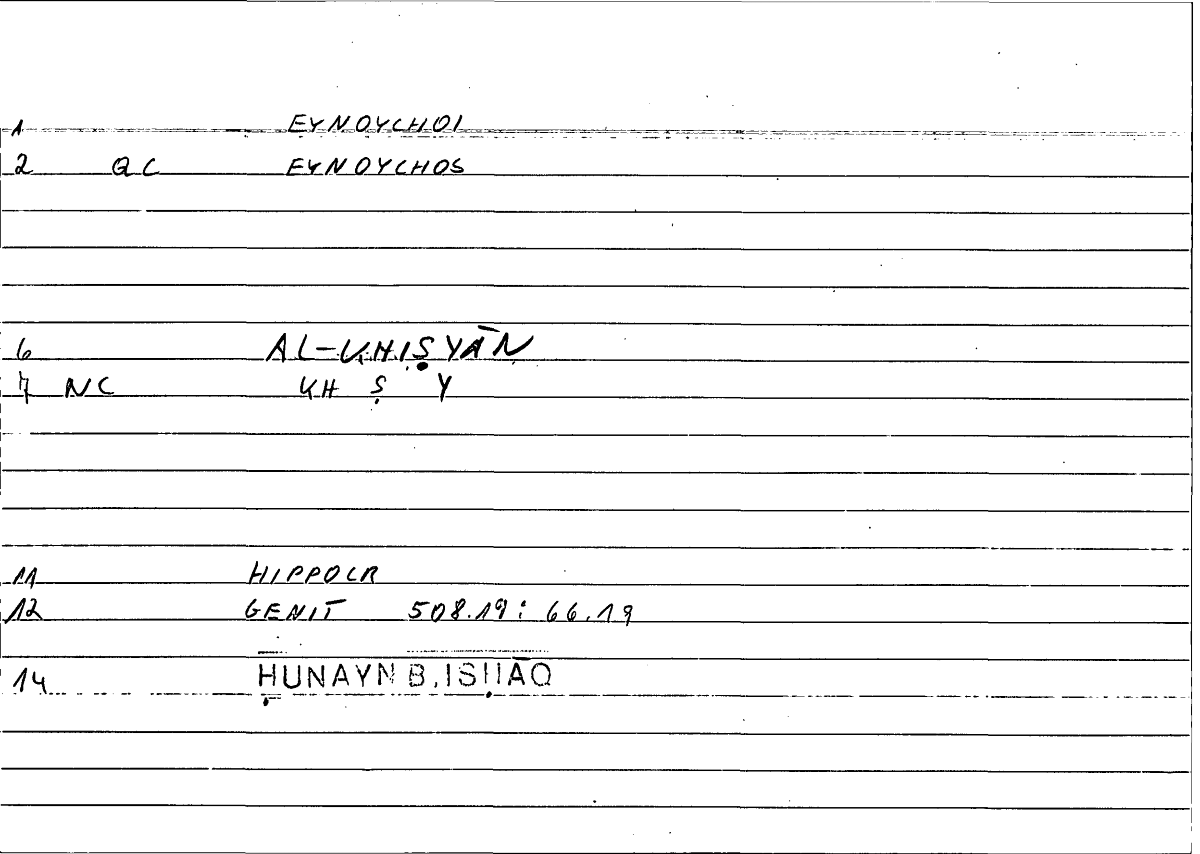 1 EYNOYCHOI
2 QC EYNOYCHOS
6 AL-KHIṢYĀN
7 NC KH Ṣ Y
11 HIPPOCR
12 GENIT 508.19: 66.19
14 ḤUNAYN B. ISḤĀQ